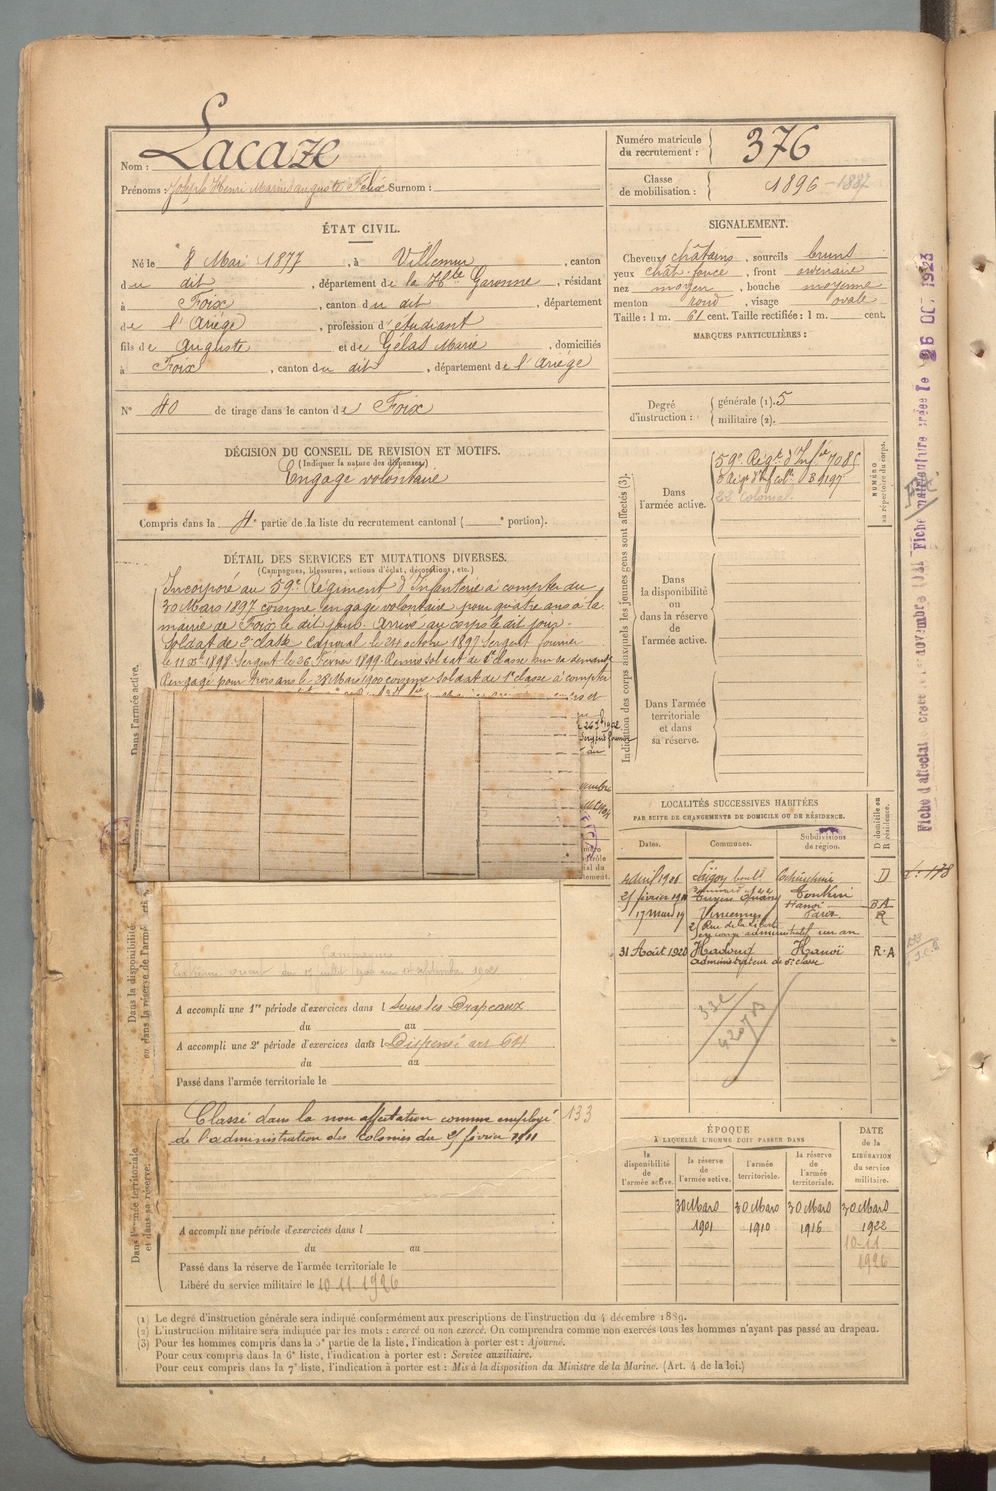 Nom : Lacaze
Prénoms : Joseph Henri Marius auguste Félix Surnom :
Numéro matricule du recrutement : 376
Classe de mobilisation : 1896 - 1887
ÉTAT CIVIL.
Né le 8 Mai 1877, à Villemur, canton
du dit, département de la Hte Garonne, résidant
à Foix, canton du dit, département
de l'Ariège, profession d'étudiant
fils de Auguste et de Gélas Marie, domiciliés
à Foix, canton du dit, département de l'Ariège
N° 40 de tirage dans le canton de Foix
SIGNALEMENT.
Cheveux châtains, sourcils bruns
yeux chât. foncé, front ordinaire
nez moyen, bouche moyenne
menton rond, visage ovale
Taille : 1 m. 61 cent. Taille rectifiée : 1 m. cent.
MARQUES PARTICULIÈRES :
Degré d'instruction : générale (1). 5
militaire (2).
DÉCISION DU CONSEIL DE REVISION ET MOTIFS.
(Indiquer la nature des dispenses)
Engagé volontaire
Compris dans la 4e partie de la liste du recrutement cantonal ( e portion).
DÉTAIL DES SERVICES ET MUTATIONS DIVERSES.
(Campagnes, blessures, actions d'éclat, décorations, etc.)
Dans l'armée active.
Incorporé au 59e Régiment d'Infanterie à compter du
30 Mars 1897 comme engagé volontaire pour quatre ans à la
mairie de Foix le dit jour. Arrivé au corps le dit jour.
Soldat de 2e classe Caporal le 24 octobre 1897 Sergent fourrier
le 11 Xbre 1898. Sergent le 26 Février 1899. Remis soldat de classe sur sa demande
Rengagé pour trois ans le 28 Mars 1900 comme soldat de 1e classe à compter
Indication des corps auxquels les jeunes gens sont affectés (3).
NUMÉRO au répertoire du corps.
Dans l'armée active.
59e Régt d'Infie 7085
Régt d'Inf colle 31197
22 Colonial
Dans la disponibilité ou dans la réserve de l'armée active.
Dans l'armée territoriale et dans sa réserve.
LOCALITÉS SUCCESSIVES HABITÉES
PAR SUITE DE CHANGEMENTS DE DOMICILE OU DE RÉSIDENCE.
Dates. Communes. Subdivisions de région. D domicile ou R résidence.
4 avril 1906 Saïgon Cochinchine D
février 1911 Tuyen Quang Tonkin
Hanoï
17 mars 19 Vincennes Paris R
Rue de la Liberté
en congé administratif un an
31 Août 1920 Hadong Hanoï R.A
administrateur de classe
33e
4207 B
Dans la disponibilité ou dans la réserve de l'armée active.
Campagnes
Extrême orient du 13 juillet 1900 au septembre 1902
A accompli une 1re période d'exercices dans l Sous les Drapeaux
du au
A accompli une 2e période d'exercices dans l Dispensé art
du au
Passé dans l'armée territoriale le
Dans l'armée territoriale et dans sa réserve.
Classé dans la non affectation comme employé 133
de l'administration des colonies du février 1911
A accompli une période d'exercices dans l
du au
Passé dans la réserve de l'armée territoriale le
Libéré du service militaire le 10.11.1926
ÉPOQUE
À LAQUELLE L'HOMME DOIT PASSER DANS
la disponibilité de l'armée active. la réserve de l'armée active. l'armée territoriale. la réserve de l'armée territoriale.
DATE de la LIBÉRATION du service militaire.
30 Mars 1901 30 Mars 1910 30 Mars 1916 30 Mars 1922
10-11
1926
(1) Le degré d'instruction générale sera indiqué conformément aux prescriptions de l'instruction du 4 décembre 1889.
(2) L'instruction militaire sera indiquée par les mots : exercé ou non exercé. On comprendra comme non exercés tous les hommes n'ayant pas passé au drapeau.
(3) Pour les hommes compris dans la 5e partie de la liste, l'indication à porter est : Ajourné.
Pour ceux compris dans la 6e liste, l'indication à porter est : Service auxiliaire.
Pour ceux compris dans la 7e liste, l'indication à porter est : Mis à la disposition du Ministre de la Marine. (Art. 4 de la loi.)
26 OCT. 1923